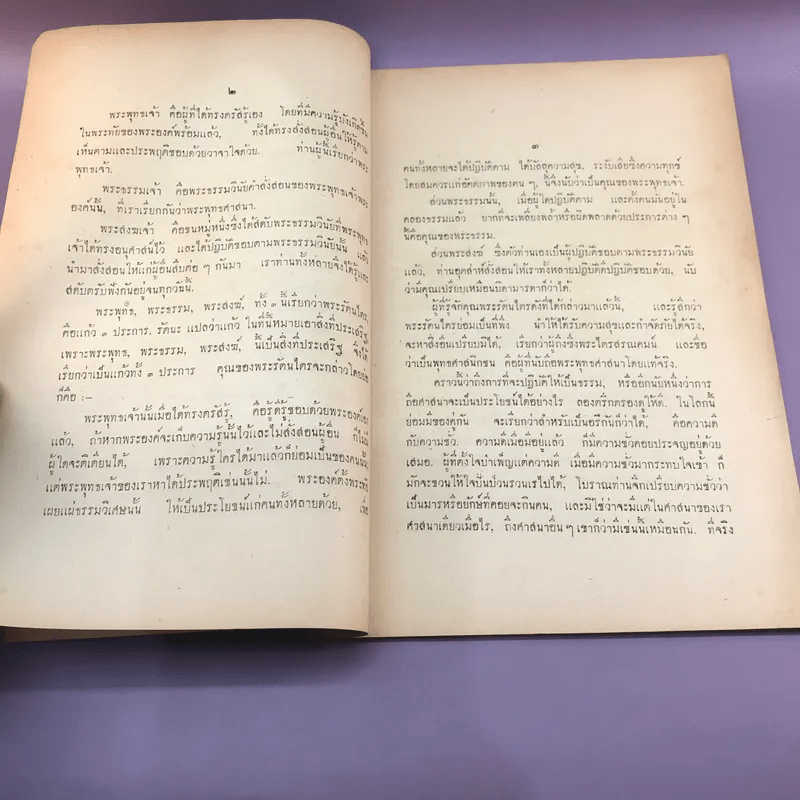 ๒
พระพุทธเจ้า คือผู้ที่ได้ทรงตรัสรู้เอง โดยที่มีความรู้บังเกิดขึ้น
ในพระทัยของพระองค์พร้อมแล้ว, ทั้งได้ทรงสั่งสอนผู้อื่นให้รู้ตาม
เห็นตามและประพฤติชอบด้วยวาจาใจด้วย. ท่านผู้นี้เรียกว่าพระ
พุทธเจ้า.
พระธรรมเจ้า คือพระธรรมวินัยคำสั่งสอนของพระพุทธเจ้าพระ
องค์นั้น, ที่เราเรียกกันว่าพระพุทธศาสนา.
พระสงฆเจ้า คือชนหมู่หนึ่งซึ่งได้สดับพระธรรมวินัยที่พระพุทธ
เจ้าได้ทรงอนุศาสน์ไว้ และได้ปฏิบัติชอบตามพระธรรมวินัยนั้น แล้ว
นำมาสั่งสอนให้แก่ผู้อื่นสืบต่อ ๆ กันมา เราท่านทั้งหลายจึงได้รู้และ
สดับตรับฟังกันอยู่จนทุกวันนี้.
พระพุทธ, พระธรรม, พระสงฆ์, ทั้ง ๓ นี้เรียกว่าพระรัตนไตร,
คือแก้ว ๓ ประการ. รัตนะ แปลว่าแก้ว ในที่นี้หมายเอาสิ่งที่ประเสริฐ
เพราะพระพุทธ, พระธรรม, พระสงฆ์, นี้เป็นสิ่งที่ประเสริฐ จึงได้
เรียกว่าเป็นแก้วทั้ง ๓ ประการ คุณของพระรัตนไตรจะกล่าวโดยย่อ
ก็คือ :–
พระพุทธเจ้านั้นเมื่อได้ทรงตรัสรู้, คือรู้ดีรู้ชอบด้วยพระองค์เอง
แล้ว, ถ้าหากพระองค์จะเก็บความรู้นั้นไว้และไม่สั่งสอนผู้อื่น ก็ไม่มี
ผู้ใดจะติเตียนได้, เพราะความรู้ใครได้มาแล้วก็ย่อมเป็นของคนนั้น
แต่พระพุทธเจ้าของเราหาได้ประพฤติเช่นนั้นไม่. พระองค์ตั้งพระทัย
เผยแผ่ธรรมวิเศษนั้น ให้เป็นประโยชน์แก่คนทั้งหลายด้วย, เพื่อ
๓
คนทั้งหลายจะได้ปฏิบัติตาม ได้บัลลุความสุข, ระงับเสียซึ่งความทุกข์
โดยสมควรแก่อัตตภาพของตน ๆ, นี้จึงนับว่าเป็นคุณของพระพุทธเจ้า.
ส่วนพระธรรมนั้น, เมื่อผู้ใดปฏิบัติตาม และตั้งตนมั่นอยู่ใน
คลองธรรมแล้ว ยากที่จะเพลี่ยงพล้ำหรือผิดพลาดด้วยประการต่าง ๆ
นี้คือคุณของพระธรรม.
ส่วนพระสงฆ์ ซึ่งตัวท่านเองเป็นผู้ปฏิบัติชอบตามพระธรรมวินัย
แล้ว, ท่านอุตส่าห์สั่งสอนให้เราทั้งหลายปฏิบัติดีปฏิบัติชอบด้วย, นับ
ว่ามีคุณเปรียบเหมือนบิดามารดาก็ว่าได้.
ผู้ที่รู้จักคุณพระรัตนไตรดังที่ได้กล่าวมาแล้วนั้น, และรู้สึกว่า
พระรัตนไตรย่อมเป็นที่พึ่ง นำให้ได้รับความสุขและกำจัดภัยได้จริง,
จะหาสิ่งอื่นเปรียบมิได้, เรียกว่าผู้ถึงซึ่งพระไตรสรณคมน์ และชื่อ
ว่าเป็นพุทธศาสนิกชน คือผู้ที่นับถือพระพุทธศาสนาโดยแท้จริง.
คราวนี้ว่าถึงการที่จะปฏิบัติให้เป็นธรรม, หรืออีกนัยหนึ่งว่าการ
ถือศาสนาจะเป็นประโยชน์ได้อย่างไร ลองตริกตรองดูให้ดี. ในโลกนี้
ย่อมมีของคู่กัน จะเรียกว่าสำหรับเป็นอริกันก็ว่าได้, คือความดี
กับความชั่ว. ความดีเมื่อมีอยู่แล้ว ก็มีความชั่วคอยประจญอยู่ด้วย
เสมอ. ผู้ที่ตั้งใจบำเพ็ญแต่ความดี เมื่อมีความชั่วมากระทบใจเข้า ก็
มักจะชวนให้ใจปั่นป่วนรวนเรไปได้, โบราณท่านจึงเปรียบความชั่วว่า
เป็นมารหรือยักษ์ที่คอยจะกินคน, และมิใช่ว่าจะมีแต่ในศาสนาของเรา
ศาสนาเดียวเมื่อไร, ถึงศาสนาอื่น ๆ เขาก็ว่ามีเช่นนี้เหมือนกัน. ที่จริง